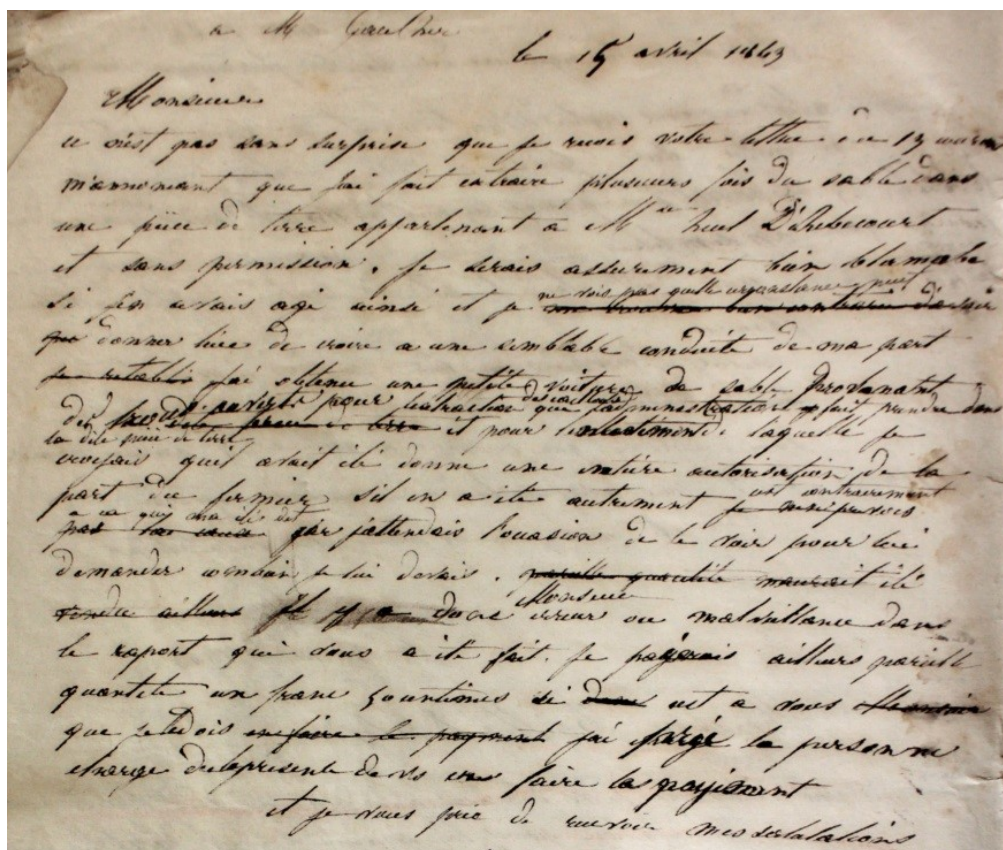 a M Gaulthier
le 15 avril 1863
Monsieur
ce n'est pas sans surprise que je recois votre lettre du 13 courant
m'annoncant que j'ai fait extraire plusieurs fois du sable dans
une pièce de terre appartenant a Mme huet
et sans permission. Je serais assurement bien blamable
si j'en avais agi ainsi et je ne vois pas quelle circonstance peut
donner lieu de croire a une semblable conduite de ma part
j'ai obtenu une petite voiture de sable provenant
des pour l'extraction des cailloux que l'administration a fait prendre dans
la dite pièce de terre et pour laquelle je
croyais quil avait été donné une entière autorisation de la
part du fermier s'il en a été autrement c'est contrairement
a ce qui m'a été dit car j'attendais l'occasion de le voir pour lui
demander combien je lui devais. pareille quantité m'aurait été
vendu ailleurs Il y a donc Monsieur erreur ou malveillance dans
le raport qui vous a été fait. Je payerais ailleurs pareille
quantité un franc 50 centimes si c'est a vous Monsieur
que je le dois en faire le payment j'ai chargé la personne
chargé de la présente de vs en faire le payement
et je vous prie de recevoir mes salutations